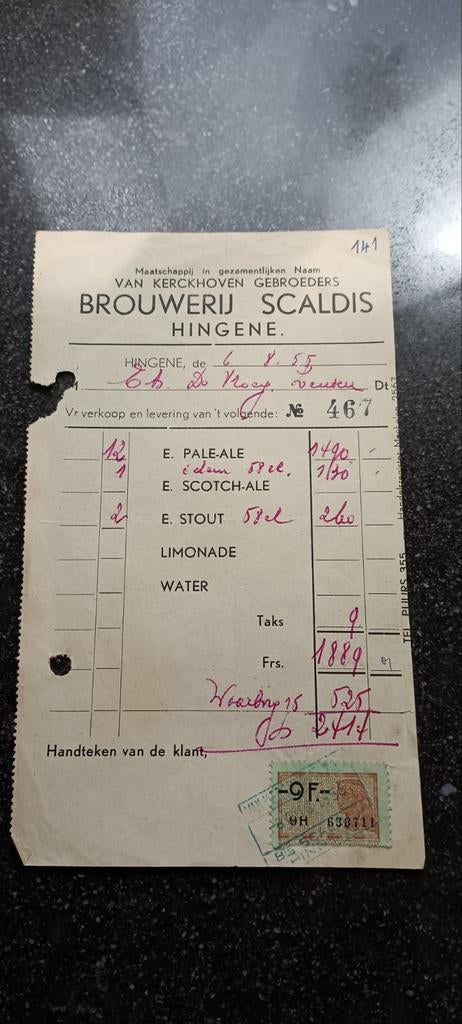 141
Maatschappij in gezamentlijken Naam
VAN KERCKHOVEN GEBROEDERS
BROUWERIJ SCALDIS
HINGENE.
HINGENE, de 6 8. 55
M Eb. De Dt
Vr verkoop en levering van 't volgende: № 467
12 E. PALE-ALE 1490
1 idem 58 cl. 130
E. SCOTCH-ALE
2 E. STOUT 58 cl 260
LIMONADE
WATER
Taks 9
Frs. 1889
Waarborg 15 525
2414
Handteken van de klant,
-9F.-
9H 630711
TEL. PUURS 355 Handelsregister Mechelen 2567